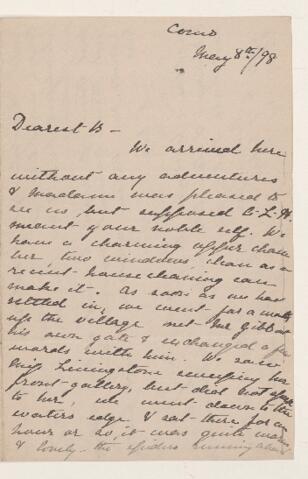 Como
May 8th/98
Dearest B -
We arrived here
without any adventures
& Madam was pleased to
see us, but supposed C. L. H.
meant your noble self. We
have a charming upper cham
ber, two windows, clean as a
recent housecleaning can
make it. As soon as we had
settled in, we went for a walk
up the village met Mr Gibb at
his own gate & exchanged a few
words with him. We saw
Miss Livingstone sweeping her
front gallery, but did not speak
to her, we went down to the
waters edge & sat there for an
hour or so, it was quite warm
& lovely - the spiders running about